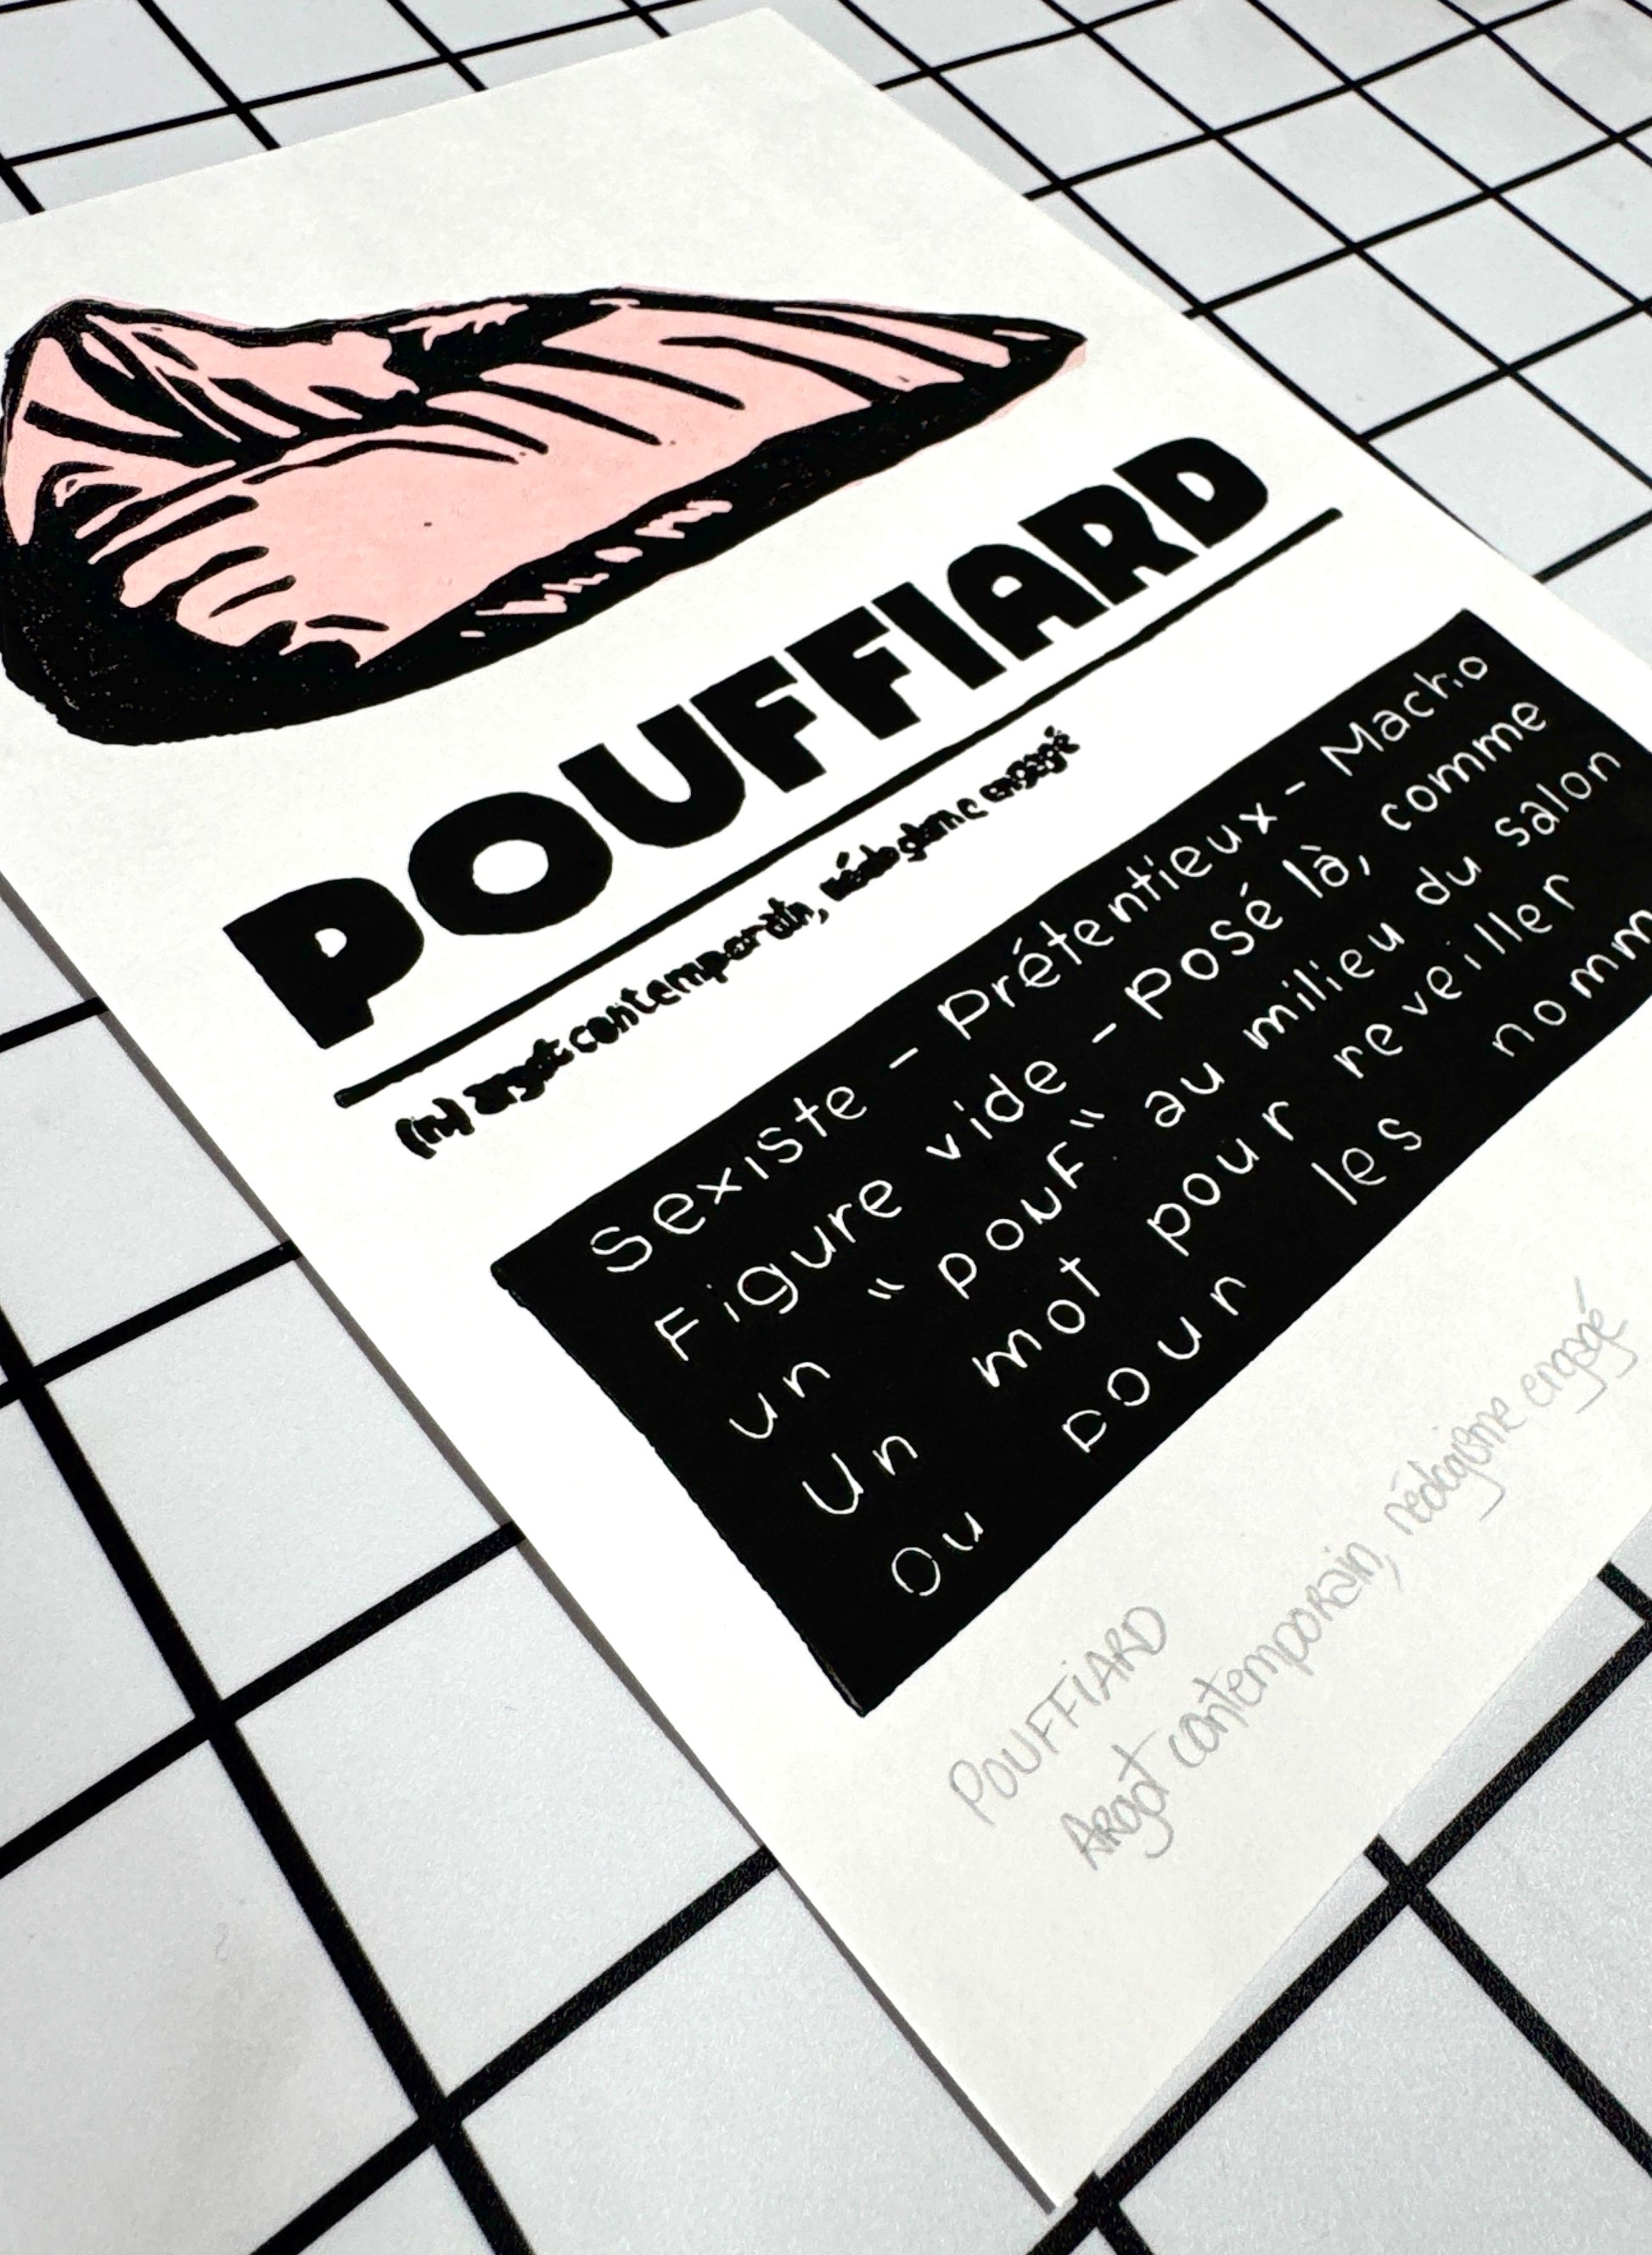 POUFFIARD
(n) argot contemporain, néologisme engagé
Sexiste - Prétentieux - Macho
Figure vide - Posé là, comme
un "pouf" au milieu du salon
Un mot pour reveiller
Ou pour les nomm
POUFFIARD
Argot contemporain, néologisme engagé